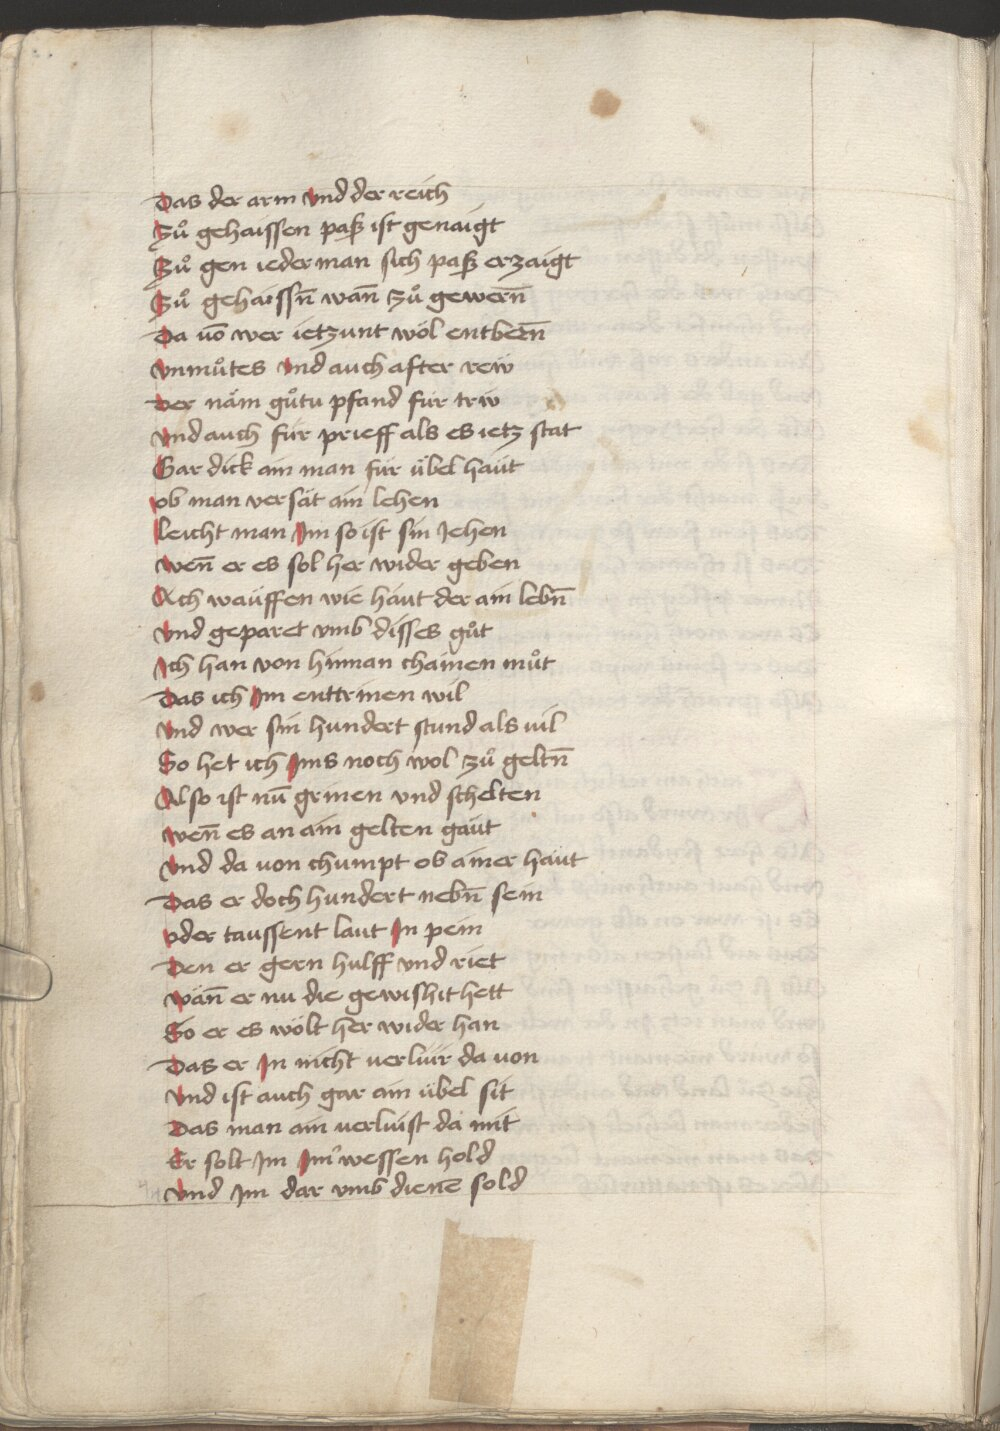 Das der arm Vnd der reich
Zů gehaissen paß ist genaigt
Zů gen iederman sich paß erzaigt
Zů gehaissn̄ wan̄ zů gewern̄
Da uō wer ietzunt wol entbern̄
Vnmůtes Vnd auch after rew
Der näm gůtu pfand für triw
Vnd auch für prieff als es ietz stat
Gar dick ain man für übel haüt
ob man versät ain lehen
leicht man Jm so ist sin Jehen
wen̄ er es sol her wider geben
Ach waüffen wie haut der ain lebn̄
Vnd geparet vmb disses gůt
Ich han von hinnan chainen můt
Das ich Jm enttrinen wil
Vnd wer sin hundert stund als uil
So het ich Jms noch wol zů geltn̄
Also ist nū grinen vnd schelten
wen̄ es an ain gelten gaüt
Vnd da uon chumpt ob ainer haüt
Das er doch hundert nebn̄ sein
oder taussent laut Jn pein
Den er gern hulff vnd riet
wän̄ er nu die gewishit hett
So er es wölt her wider han
Das er Jn nicht verluir da uon
Vnd ist auch gar ain übel sit
Das man ain verluist da mit
Er solt Jm Jm̄ wessen hold
Vnd Jm dar vmb dienē sold